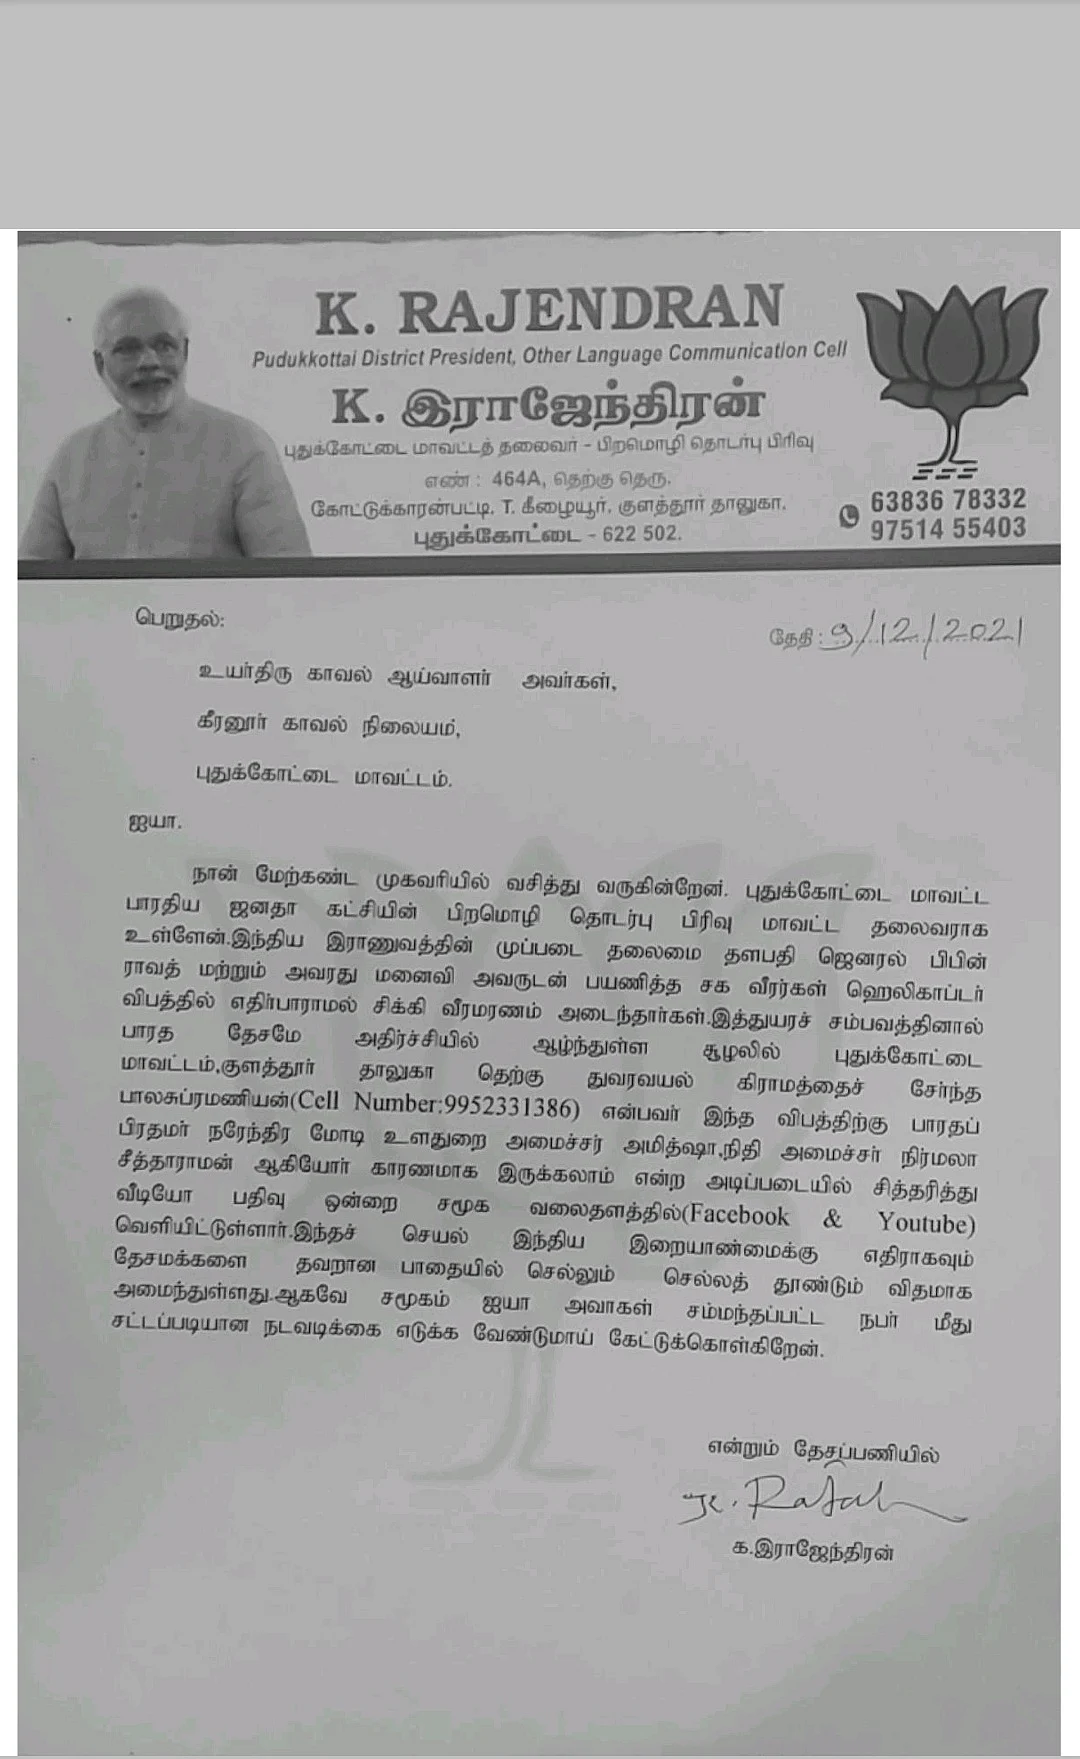 K. RAJENDRAN
Pudukkottai District President, Other Language Communication Cell
K. இராஜேந்திரன்
புதுக்கோட்டை மாவட்டத் தலைவர் - பிறமொழி தொடர்பு பிரிவு
எண் : 464A, தெற்கு தெரு,
கோட்டுக்காரன்பட்டி, T. கீழையூர், குளத்தூர் தாலுகா,
புதுக்கோட்டை - 622 502.
63836 78332
97514 55403
பெறுதல்:
தேதி : 9/12/2021
உயர்திரு காவல் ஆய்வாளர் அவர்கள்,
கீரனூர் காவல் நிலையம்,
புதுக்கோட்டை மாவட்டம்.
ஐயா.
நான் மேற்கண்ட முகவரியில் வசித்து வருகின்றேன். புதுக்கோட்டை மாவட்ட
பாரதிய ஜனதா கட்சியின் பிறமொழி தொடர்பு பிரிவு மாவட்ட தலைவராக
உள்ளேன்.இந்திய இராணுவத்தின் முப்படை தலைமை தளபதி ஜெனரல் பிபின்
ராவத் மற்றும் அவரது மனைவி அவருடன் பயணித்த சக வீரர்கள் ஹெலிகாப்டர்
விபத்தில் எதிர்பாராமல் சிக்கி வீரமரணம் அடைந்தார்கள்.இத்துயரச் சம்பவத்தினால்
பாரத தேசமே அதிர்ச்சியில் ஆழ்ந்துள்ள சூழலில் புதுக்கோட்டை
மாவட்டம்,குளத்தூர் தாலுகா தெற்கு துவரவயல் கிராமத்தைச் சேர்ந்த
பாலசுப்ரமணியன்(Cell Number:9952331386) என்பவர் இந்த விபத்திற்கு பாரதப்
பிரதமர் நரேந்திர மோடி உளதுறை அமைச்சர் அமித்ஷா,நிதி அமைச்சர் நிர்மலா
சீத்தாராமன் ஆகியோர் காரணமாக இருக்கலாம் என்ற அடிப்படையில் சித்தரித்து
வீடியோ பதிவு ஒன்றை சமூக வலைதளத்தில்(Facebook & Youtube)
வெளியிட்டுள்ளார்.இந்தச் செயல் இந்திய இறையாண்மைக்கு எதிராகவும்
தேசமக்களை தவறான பாதையில் செல்லும் செல்லத் தூண்டும் விதமாக
அமைந்துள்ளது.ஆகவே சமூகம் ஐயா அவாகள் சம்மந்தப்பட்ட நபர் மீது
சட்டப்படியான நடவடிக்கை எடுக்க வேண்டுமாய் கேட்டுக்கொள்கிறேன்.
என்றும் தேசப்பணியில்
க.இராஜேந்திரன்